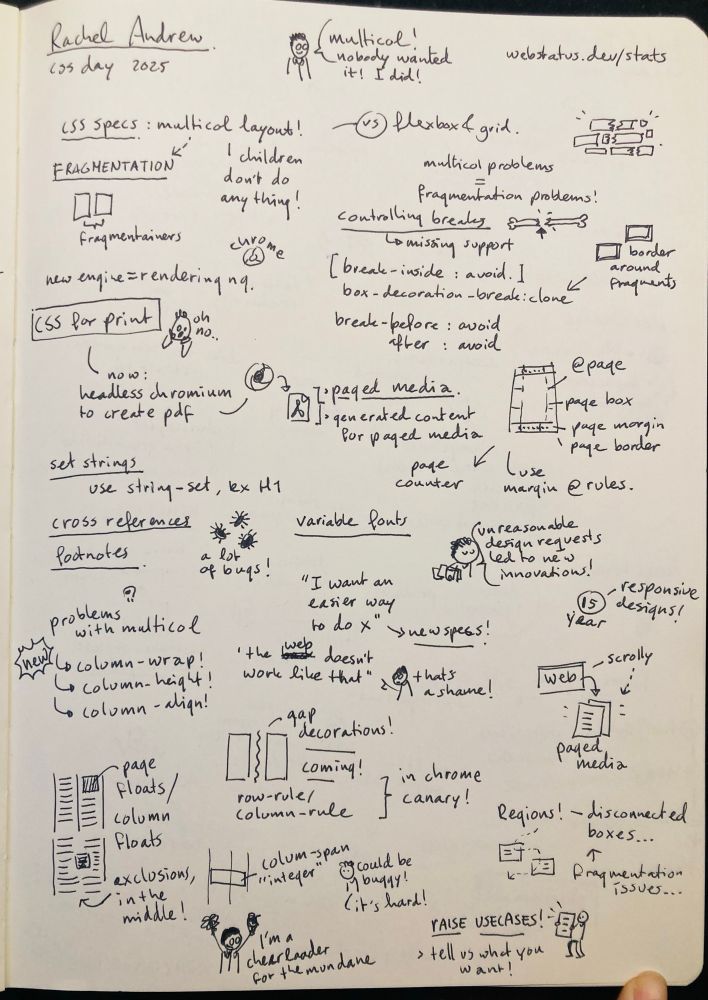 Rachel Andrew.
CSS day 2025
multicol!
nobody wanted
it! I did!
webstatus.dev/stats
CSS specs: multicol layout!
vs flexbox & grid.
FRAGMENTATION
children
don't do
any thing!
fragmentainers
multicol problems
=
fragmentation problems!
controlling breaks
missing support
chrome
new engine = rendering ng.
[break-inside: avoid.]
box-decoration-break:clone
border
around
fragments
break-before: avoid
after: avoid
CSS for print
oh
no..
now:
headless chromium
to create pdf
paged media.
generated content
for paged media
@page
page box
page margin
page border
page
counter
use
margin @rules.
set strings
use string-set, ex H1
cross references
footnotes.
a lot
of bugs!
variable fonts
unreasonable
design requests
led to new
innovations!
"I want an
easier way
to do x"
new specs!
15
year
responsive
designs!
?
problems
with multicol
new
column-wrap!
column-height!
column-align!
'the web doesn't
work like that"
thats
a shame!
web
scrolly
paged
media
gap
decorations!
coming!
row-rule/
column-rule
in chrome
canary!
page
floats/
column
floats
exclusions,
in the
middle!
colum-span
"integer"
could be
buggy!
it's hard!
Regions! - disconnected
boxes...
fragmentation
issues...
I'm a
cheerleader
for the mundane
RAISE USECASES!
> tell us what you
want!